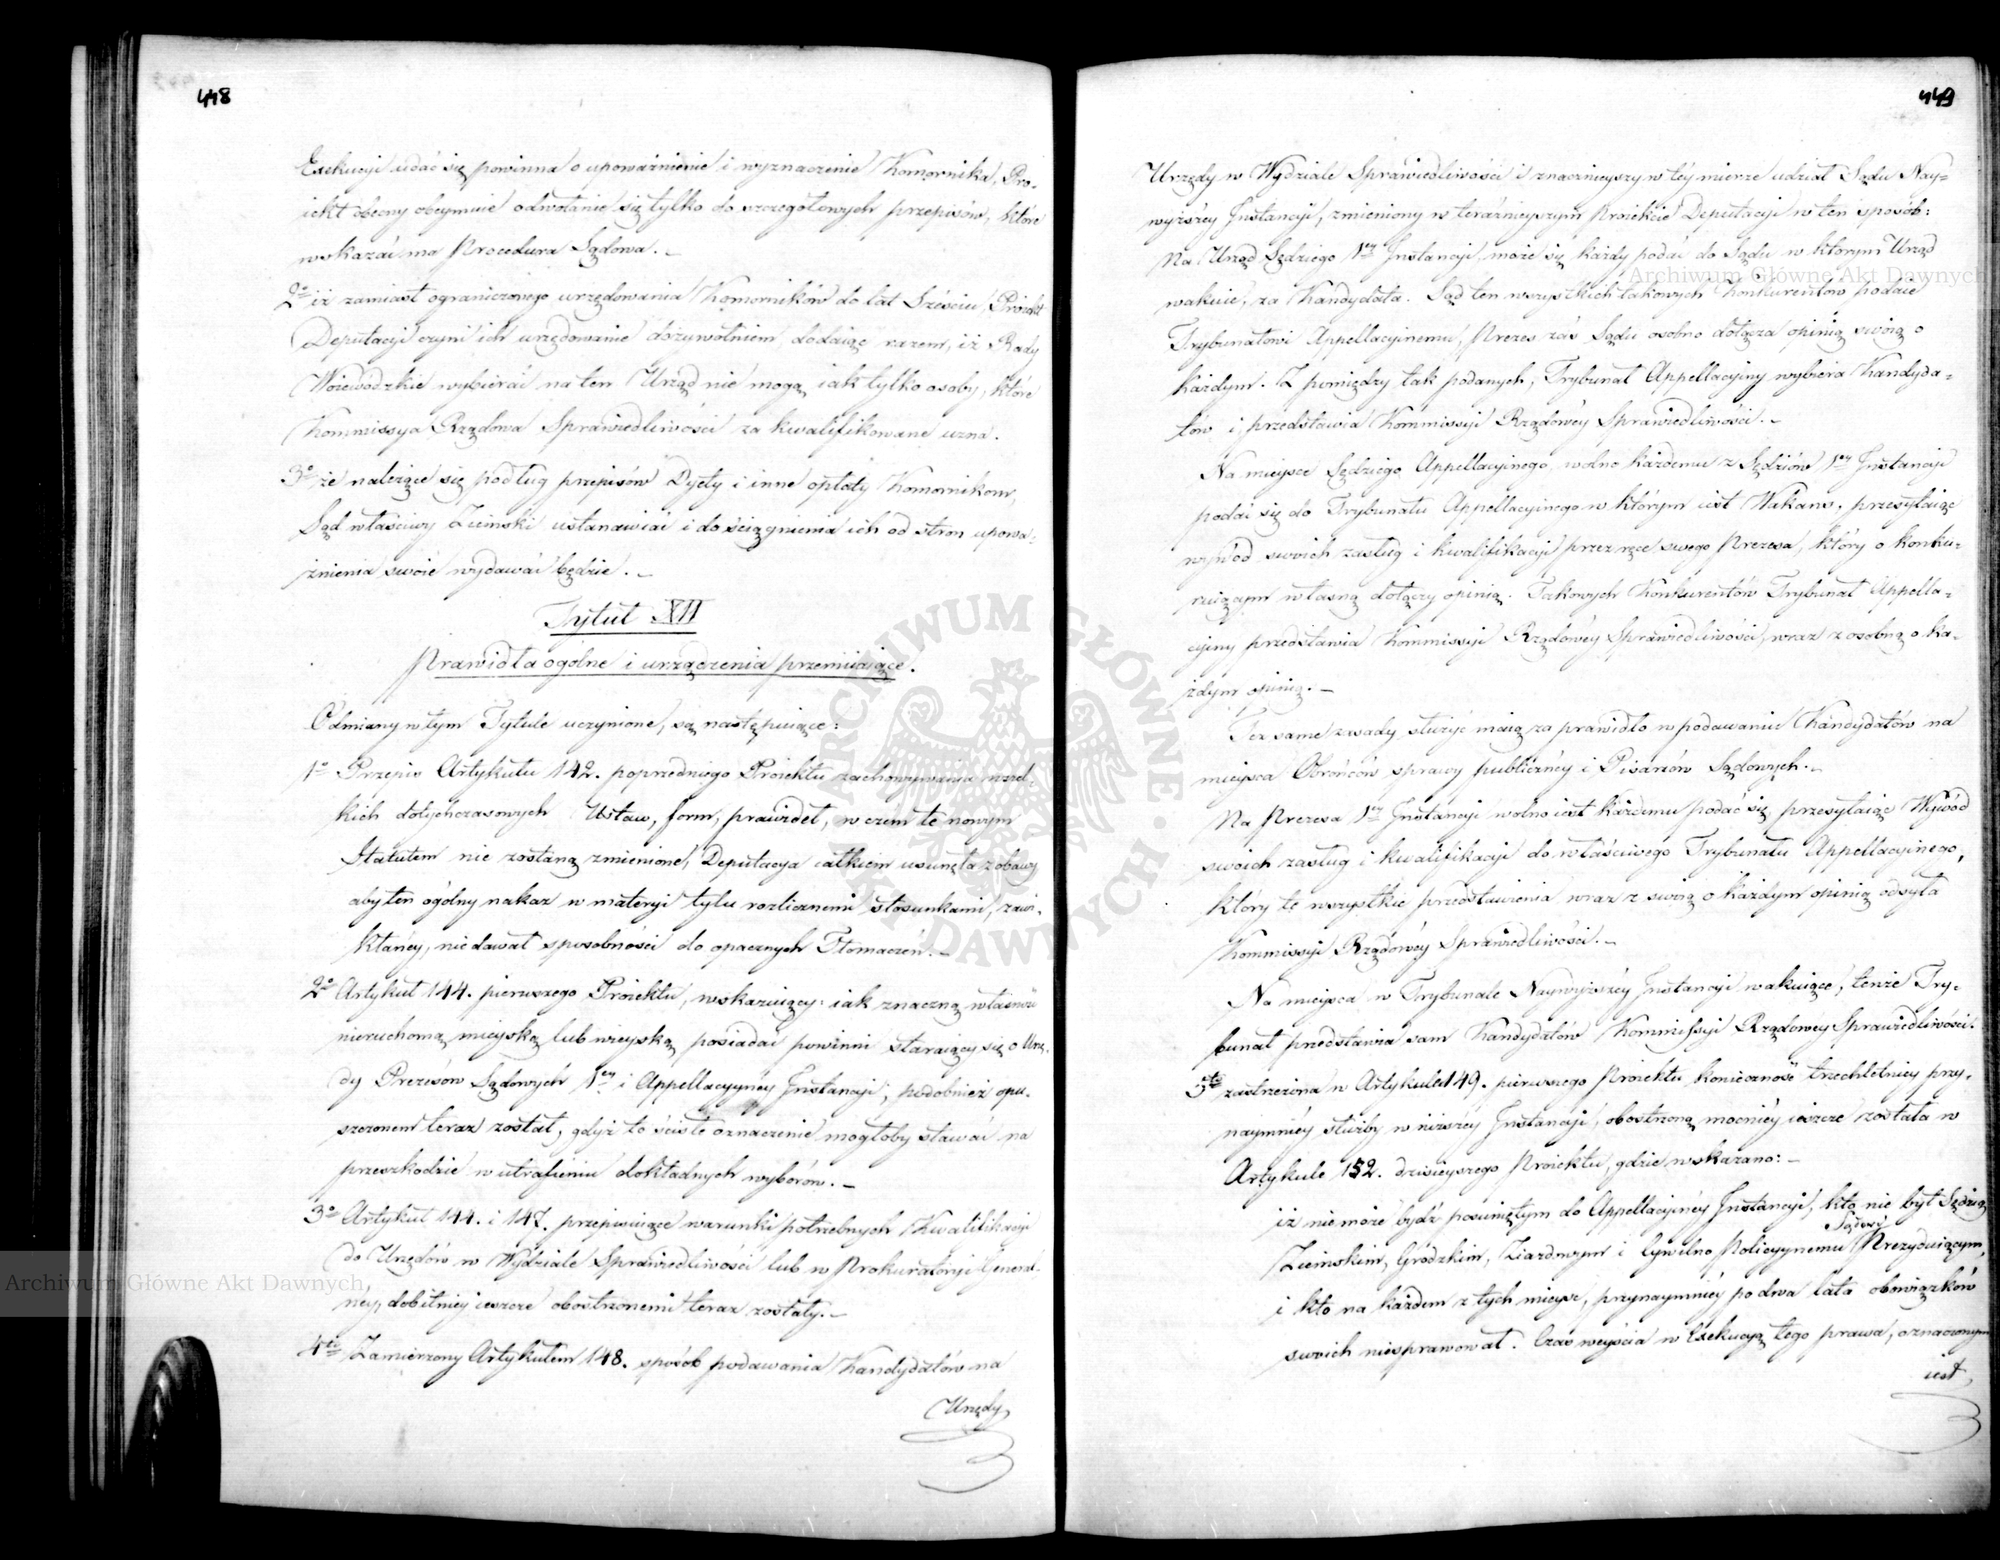 448
Exekucyi udać się powinna o upoważnienie i wyznaczenie Komornika, Pro-
iekt obecny obeymuie odwołanie się tylko do szczegołowych przepisów, które
wskazać ma Procedura Sądowa. –
2° iż zamiast ograniczonego urzędowania Komorników do lat Sześciu, Proiekt
Deputacyi czyni ich urzędowanie dożywotniem, dodaiąc razem, iż Rady
Woiewodzkie wybierać na ten Urząd nie mogą iak tylko osoby, które
Kommissya Rządowa Sprawiedliwości za kwalifikowane uzna.
3° że należące się podług przepisów Dyety i inne opłaty Komornikom,
Sąd właściwy Ziemski ustanawiać i do ściągnienia ich od stron upowa-
żnienia swoie wydawać będzie. –
Tytuł XII
Prawidła ogolne i urządzenia przemiiaiące.
Odmiany w tym Tytule uczynione, są następuiące:
1° Przepis Artykułu 142. poprzedniego Proiektu zachowywania wszel-
kich dotychczasowych Ustaw, form, prawideł, w czem te nowym
Statutem nie zostaną zmienione, Deputacya całkiem usunęła z obawy
aby ten ogólny nakaz w materyi tylu rozlicznemi stosunkami, zawi-
kłaney, nie dawał sposobności do opacznych Tłomaczeń. –
2° Artykuł 144. pierwszego Proiektu, wskazuiący: iak znaczną własność
nieruchomą mieyską lub wieyską posiadać powinni staraiący się o Urzę-
dy Prezesów Sądowych 1ey i Appellacyyney Instancyi, podobnież opu-
szczonem teraz został, gdyż to ścisłe oznaczenie mogłoby stawać na
przeszkodzie w utrafieniu dokładnych wyborów. –
3° Artykuł 144. i 147. przepisuiące warunki potrzebnych Kwalifikacyi
do Urzędów w Wydziale Sprawiedliwości lub w Prokuratoryi General-
ney, dobitniey ieszcze obostrzonemi teraz zostały. –
4to Zamierzony Artykułem 148. sposób podawania Kandydatów na
Urzędy
449
Urzędy w Wydziale Sprawiedliwości i znacznieyszy w tey mierze udział Sądu Nay-
wyższey Instancyi, zmieniony w teraźnieyszym Proiekcie Deputacyi w ten sposób:
Na Urząd Sędziego 1ey Instancyi, może się każdy podać do Sądu w którym Urząd
wakuie, za Kandydata. Sąd ten wszystkich takowych Konkurentów podaie
Trybunałowi Appellacyinemu, Prezes zaś Sądu osobno dołącza opinią swoią o
każdym. Z pomiędzy tak podanych, Trybunał Appellacyiny wybiera Kandyda-
tów i przedstawia Kommissyi Rządowey Sprawiedliwości. –
Na mieysce Sędziego Appellacyinego, wolno każdemu z Sędziów 1ey Instancyi
podać się do Trybunału Appellacyinego w którym iest Wakans, przesyłaiąc
wywód swoich zasług i kwalifikacyi przez ręce swego Prezesa, który o konku-
ruiącym własną dołączy opinią. Takowych Konkurentów Trybunał Appella-
cyiny przedstawia Kommissyi Rządowey Sprawiedliwości, wraz z osobną o ka-
żdym opinią. –
Też same zasady, służyć maią za prawidło w podawaniu Kandydatów na
mieysca Obrońców sprawy publiczney i Pisarzów Sądowych. –
Na Prezesa 1ey Instancyi wolno iest każdemu podać się, przesyłaiąc Wywód
swoich zasług i kwalifikacyi do właściwego Trybunału Appellacyinego,
który te wszystkie przedstawienia wraz z swoią o każdym opinią odsyła
Kommissyi Rządowey Sprawiedliwości. –
Na mieysca w Trybunale Naywyższey Instancyi wakuiące, tenże Try-
bunał przedstawia sam Kandydatów Kommissyi Rządowey Sprawiedliwości.
5to zastrzeżona w Artykule 149. pierwszego Proiektu konieczność trzechletniey przy-
naymniey służby w niższey Instancyi, obostrzoną mocniey ieszcze została w
Artykule 152. dzisieyszego Proiektu, gdzie wskazano: –
iż nie może bydź posuniętym do Appellacyiney Instancyi, kto nie był Sędzią
Ziemskim, Grodzkim, Ziazdowym i Cywilno Policyynemu Sądowi Prezyduiącym,
i kto na każdem z tych mieysc, przynaymniey po dwa lata obowiązków
swoich niesprawował. Czas weyścia w Exekucyą tego prawa, oznaczonym
iest
ARCHIWUM GŁÓWNE AKT DAWNYCH
Archiwum Główne Akt Dawnych
Archiwum Główne Akt Dawnych